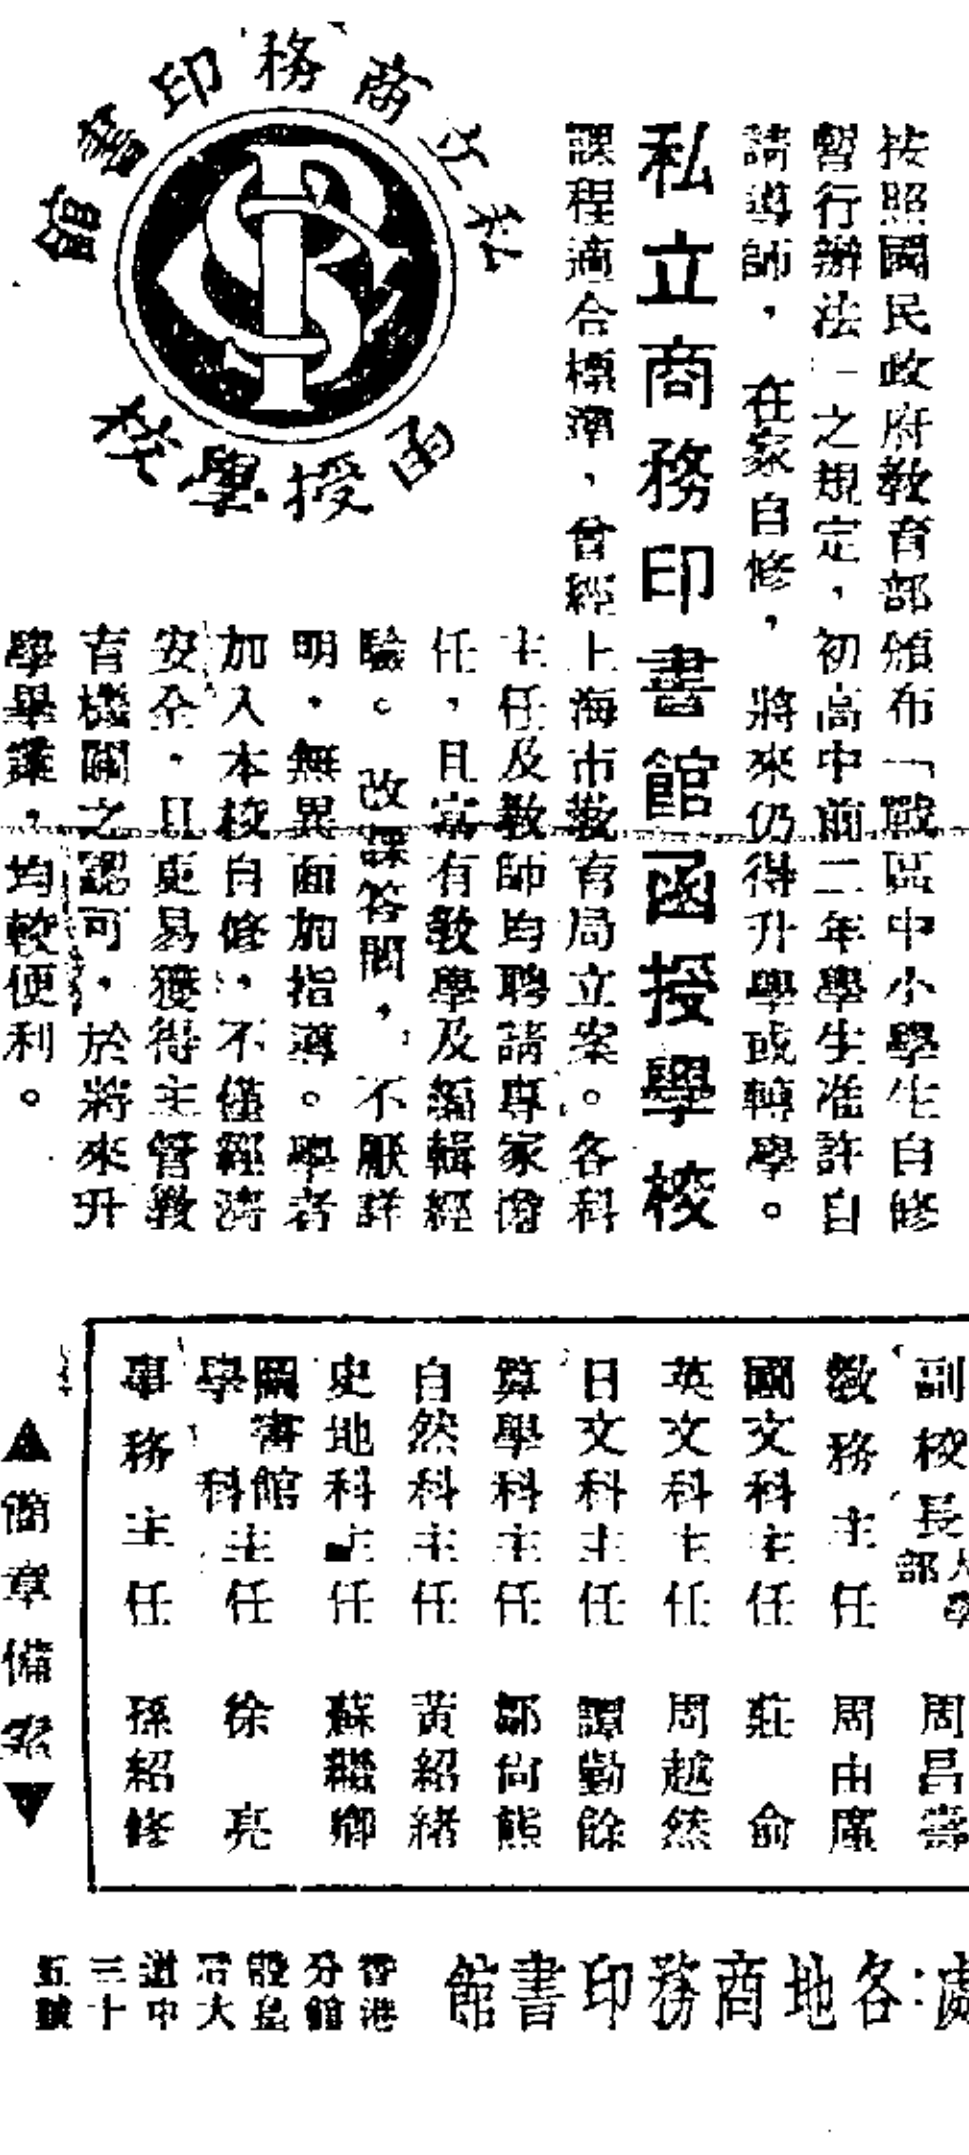 私立商務印書館
函授學校
按照國民政府教育部頒布「戰區中小學生自修
暫行辦法」之規定,初高中前二年學生准許自
請導師,在家自修,將來仍得升學或轉學。
私立商務印書館函授學校
課程適合標準,曾經上海市教育局立案。各科
主任及教師均聘請專家擔
任,且富有教學及編輯經
驗。改課答問,不厭詳
明,無異面加指導。學者
加入本校自修,不僅經濟
安全,且更易獲得主管教
育機關之認可,於將來升
學畢業,均較便利。
副校長 大學部 周昌壽
教務主任 周由廑
國文科主任 莊俞
英文科主任 周越然
日文科主任 譚勤餘
算學科主任 鄒尚熊
自然科主任 黃紹緒
史地科主任 蘇繼卿
圖書館學科主任 徐亮
事務主任 孫紹修
▲簡章備索▼
處:各地商務印書館
香港
分館
設皇
后大
道中
三十
五號